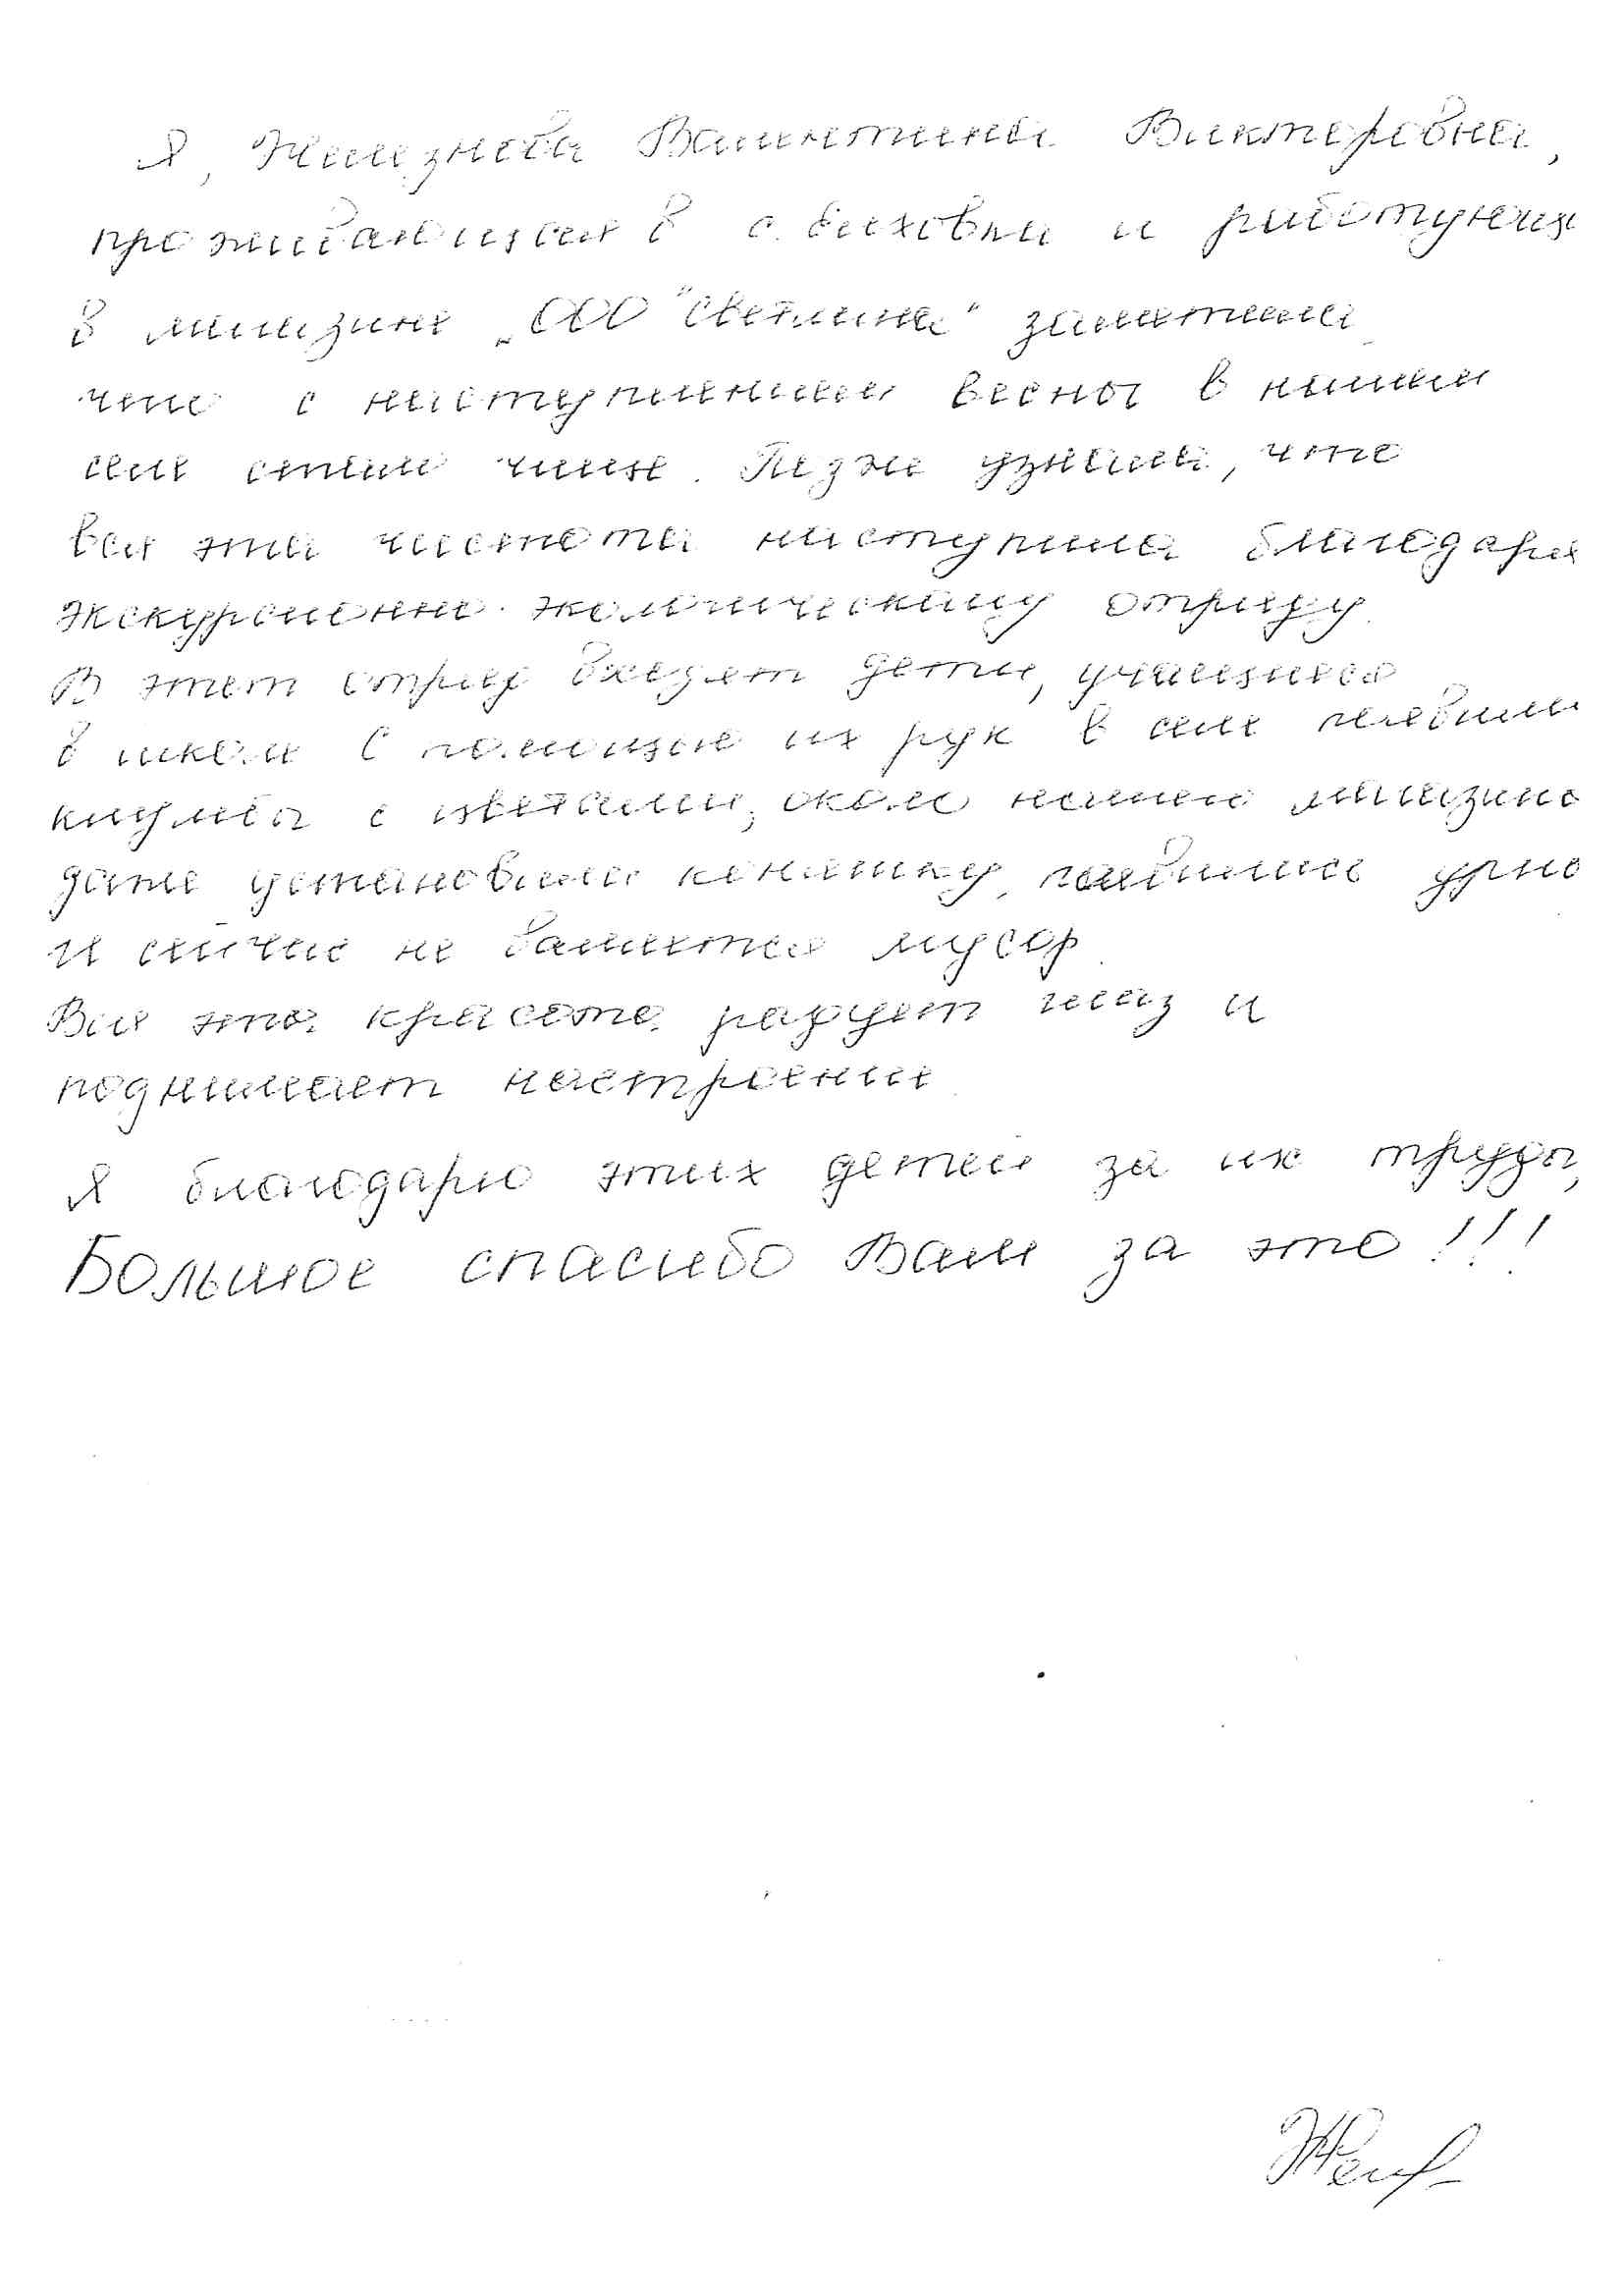 Я, Железнова Валентина Викторовна,
проживающая в с. и работующая
в магазине „ООО "Светлана" заметила
что с наступлением весны в нашем
селе стало чище. Позже узнала, что
вся эта чистота наступила благодаря
экскурсионно-экологическому отряду.
В этот отряд входят дети, учащиеся
в школе С помощью их рук в селе появили
клумбы с цветами, около нашего магазина
даже установили конашку, появились урны
И сейчас не валяется мусор.
Вся эта красота радует глаз и
поднимает настроение.
Я благодарю этих детей за их труды,
Большое спасибо Вам за это!!!